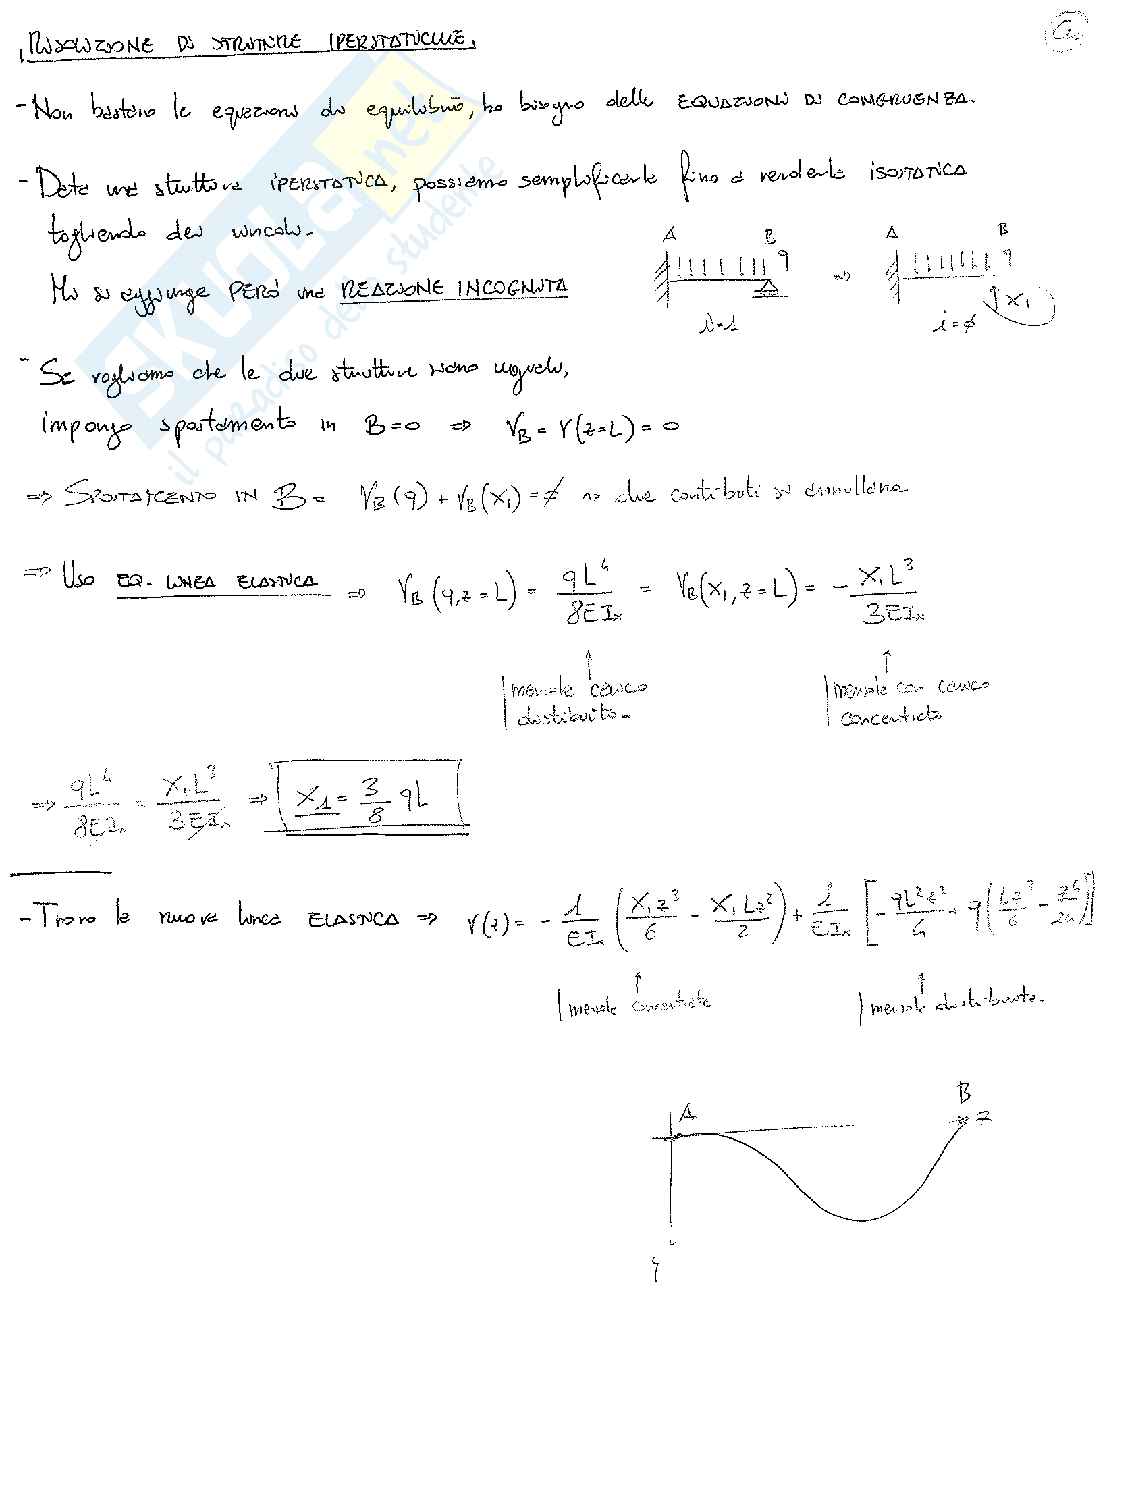 RISOLUZIONE DI STRUTTURE IPERSTATICHE.
a
- Non bastano le equazioni di equilibrio, ho bisogno delle EQUAZIONI DI CONGRUENZA.
- Data una struttura IPERSTATICA, possiamo semplificarla fino a renderla ISOSTATICA
togliendo dei vincoli.
A B q => A B q
Mi si aggiunge PERÒ una REAZIONE INCOGNITA
i=1 i=ϕ X₁
- Se vogliamo che le due strutture siano uguali,
impongo spostamento in B=0 => V_B = V(z=L) = 0
=> SPOSTAMENTO IN B = V_B(q) + V_B(X₁) = ϕ ~> due contributi si annullano
=> Uso EQ. LINEA ELASTICA => V_B(q,z=L) = qL⁴/8EIₓ = V_B(X₁,z=L) = - X₁L³/3EIₓ
mensola carico distribuito. mensola con carico concentrato
=> qL⁴/8EIₓ = X₁L³/3EIₓ => X₁ = 3/8 qL
- Trovo la nuova linea ELASTICA => V(z) = - 1/EIₓ (X₁z³/6 - X₁Lz²/2) + 1/EIₓ [- qL²z²/4 + q(Lz³/6 - z⁴/24)]
mensola concentrata mensola distribuita.
A B z
SKUOLA.net
il paradiso dello studente